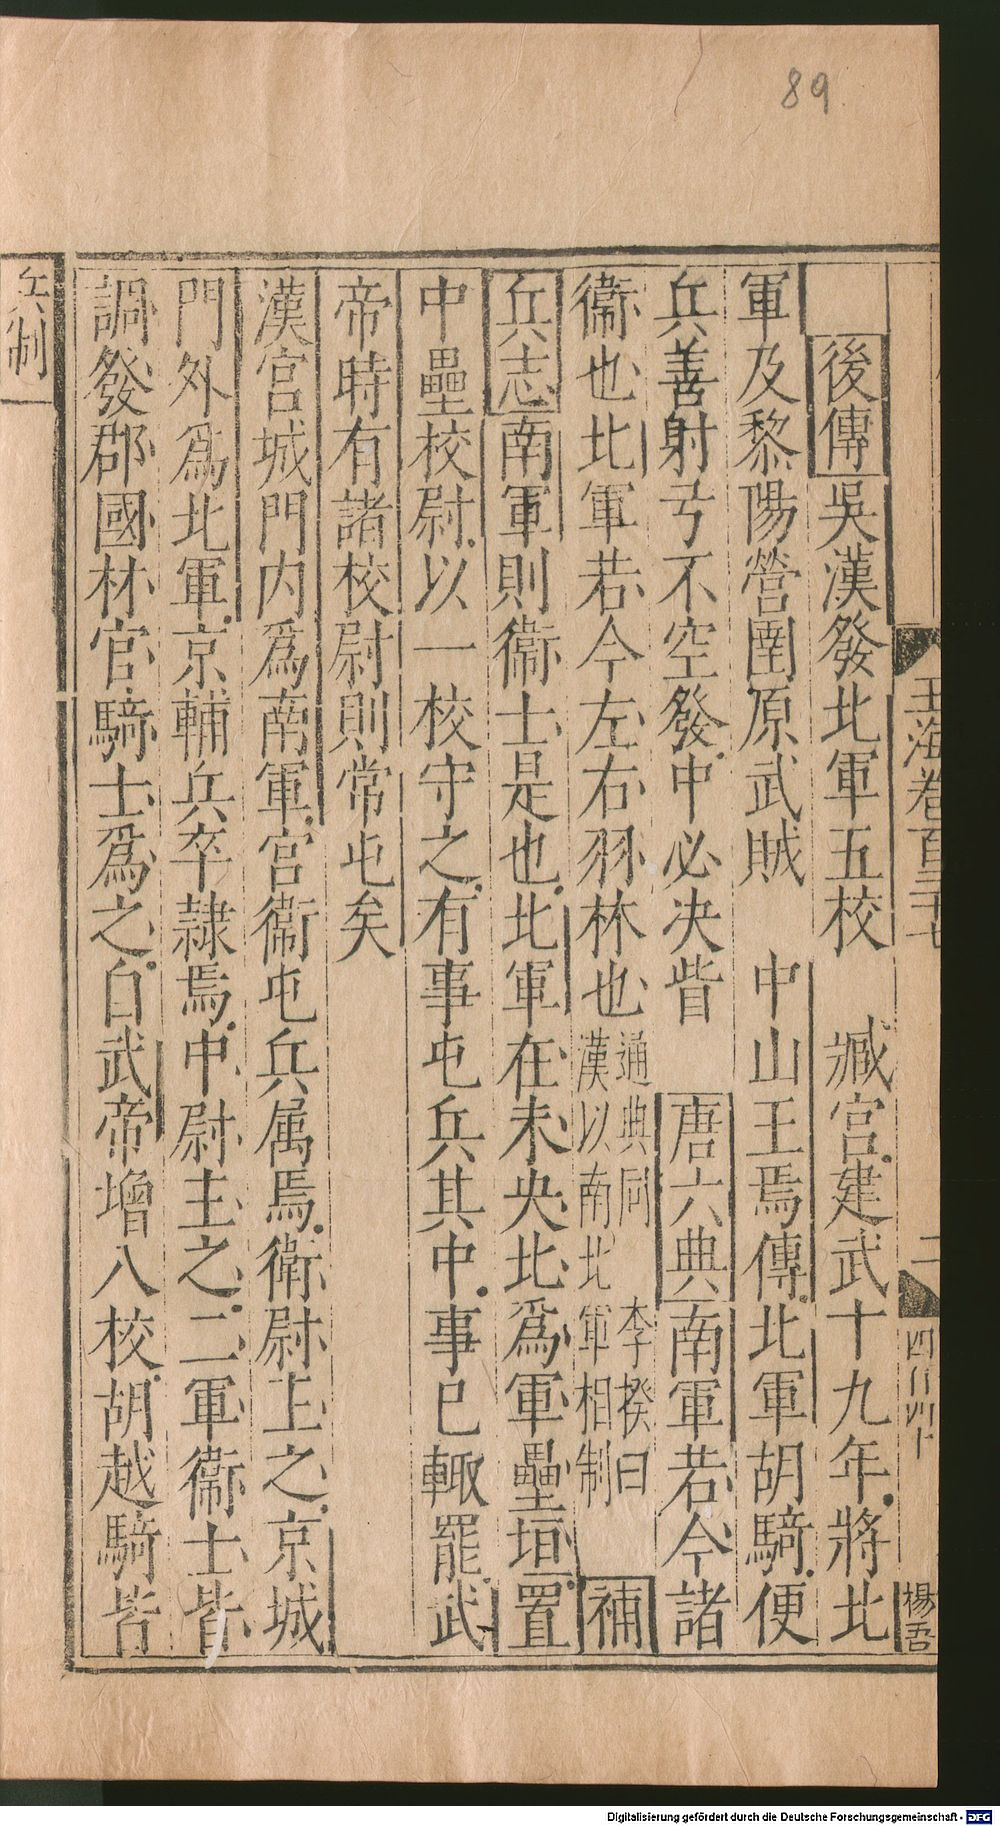 89
玉海卷百三十七
二
楊吾
後傳吳漢發北軍五校　臧宮建武十九年將北
軍及黎陽營圍原武賊　中山王焉傳北軍胡騎便
兵善射弓不空發中必决眥　唐六典南軍若今諸
衞也北軍若今左右羽林也通典同　李揆曰漢以南北軍相制補
兵志南軍則衞士是也北軍在未央北爲軍壘垣置
中壘校尉以一校守之有事屯兵其中事已輙罷武
帝時有諸校尉則常屯矣
漢宮城門内爲南軍宮衞屯兵属焉衛尉主之京城
門外爲北軍京輔兵卒隷焉中尉主之二軍衞士皆
調發郡國材官騎士爲之自武帝增八校胡越騎皆
兵制
Digitalisierung gefördert durch die Deutsche Forschungsgemeinschaft - DFG